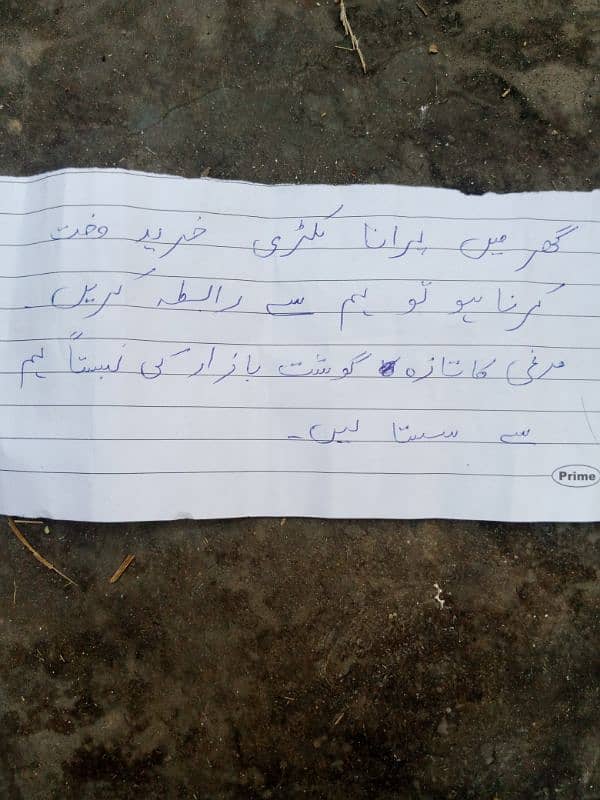 گھر میں پرانا لکڑی خرید وخت
کرنا ہو تو ہم سے رابطہ کریں۔
مرغی کا تازہ گوشت بازار کی نسبتاً ہم
سے سستا لیں۔
Prime